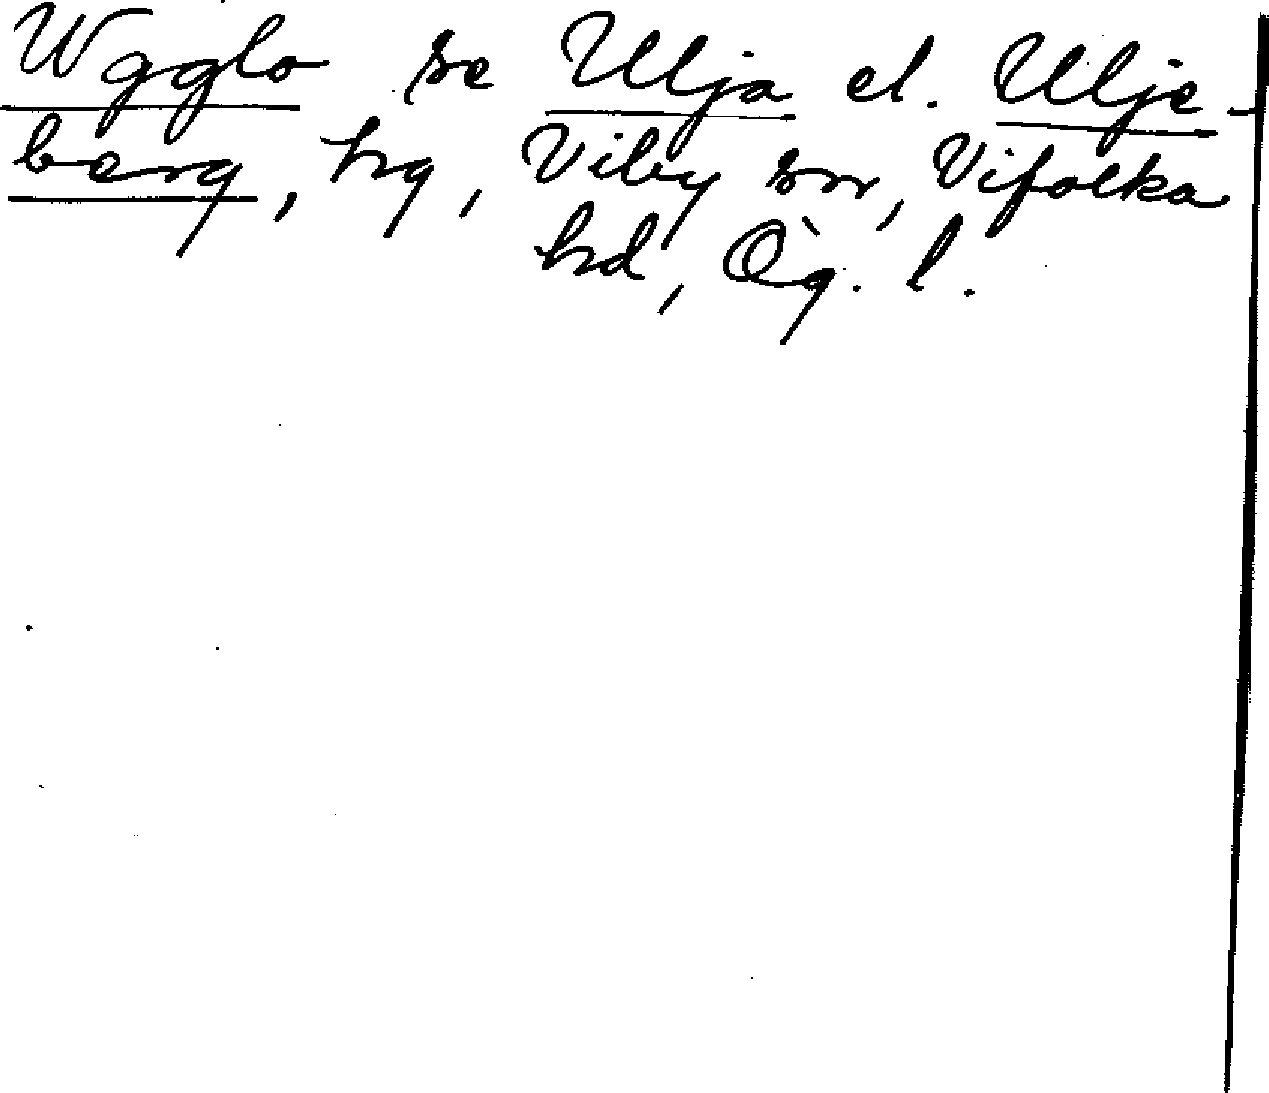 Wgglo se Ulja el. Ulje-
berg, hg, Viby sn, Vifolka
hd, Ög. l.